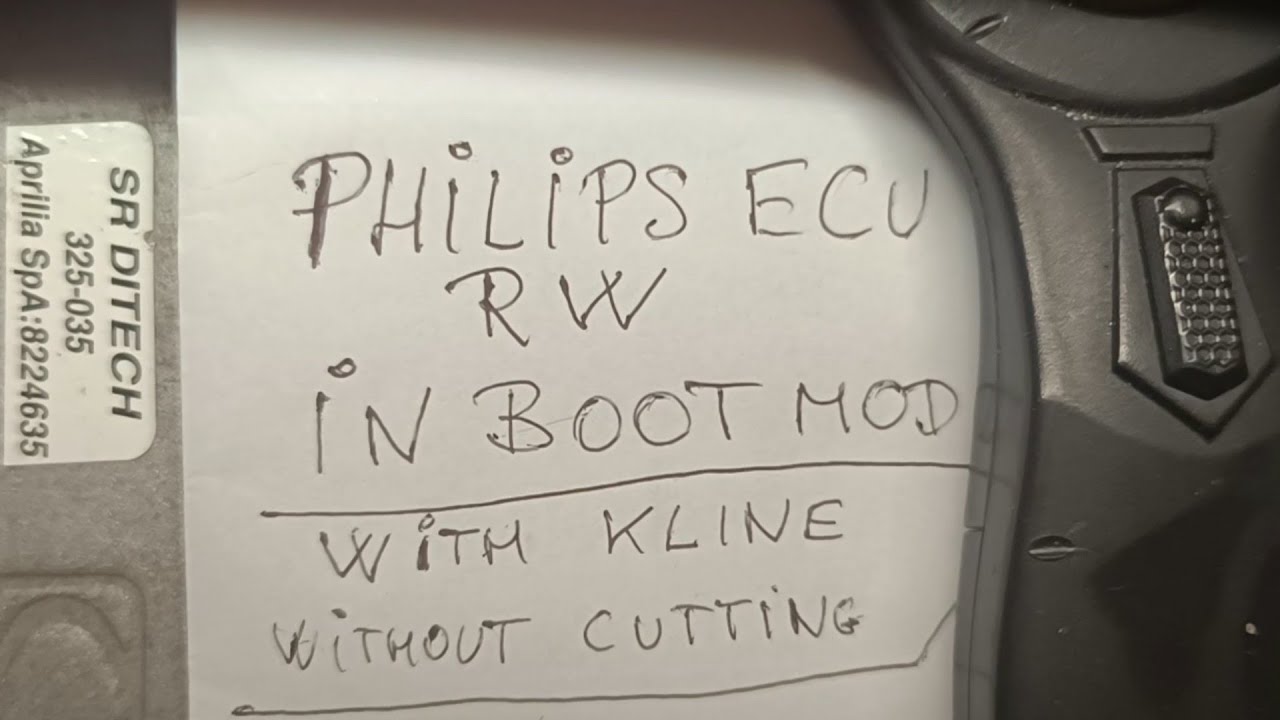 SR DITECH
325-035
Aprilia SpA:8224635
PHILIPS ECU
RW
IN BOOT MOD
WITH KLINE
WITHOUT CUTTING